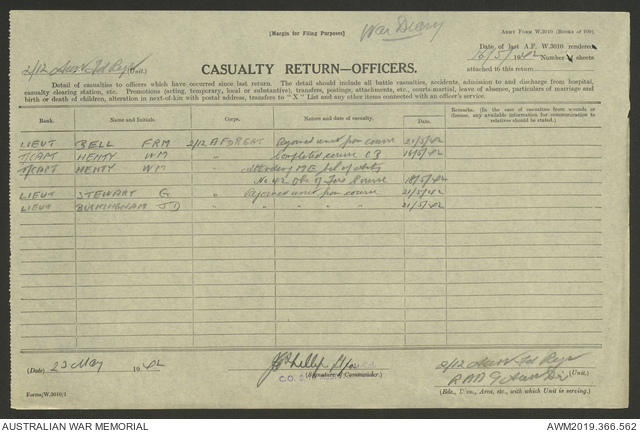 [Margin for Filing Purposes]
War Diary
ARMY FORM W.3010 (Books of 100).
Date of last A.F. W.3010 rendered
16/5/42 Number sheets
attached to this return
2/12 Aust Fd Regt (Unit.)
CASUALTY RETURN—OFFICERS.
Detail of casualties to officers which have occurred since last return. The detail should include all battle casualties, accidents, admission to and discharge from hospital,
casualty clearing station, etc. Promotions (acting, temporary, local or substantive), transfers, postings, attachments, etc., courts-martial, leave of absence, particulars of marriage and
birth or death of children, alteration in next-of-kin with postal address, transfers to "X" List and any other items connected with an officer's service.
Rank. Name and Initials. Corps. Nature and date of casualty. Date. Remarks. (In the case of casualties from wounds or disease, any available information for communication to relatives should be stated.)
LIEUT BELL FRM 2/12 A F REGT Rejoined unit from course 21/5/42
T/CAPT HENTY WM " Completed course 16/5/42
T/CAPT HENTY WM " Attending ME Sch of Arty
No 42 Course 18/5/42
LIEUT STEWART G " Rejoined unit from course 21/5/42
LIEUT BUCKINGHAM JD " " " " " 21/5/42
(Date) 23 May 1942
(Signature of Commander.)
C.O.
2/12 Aust Fd Regt (Unit.)
RAA 9 Aust Div
(Bde., Divn., Area, etc., with which Unit is serving.)
Forms/W.3010/1
AUSTRALIAN WAR MEMORIAL
AWM2019.366.562